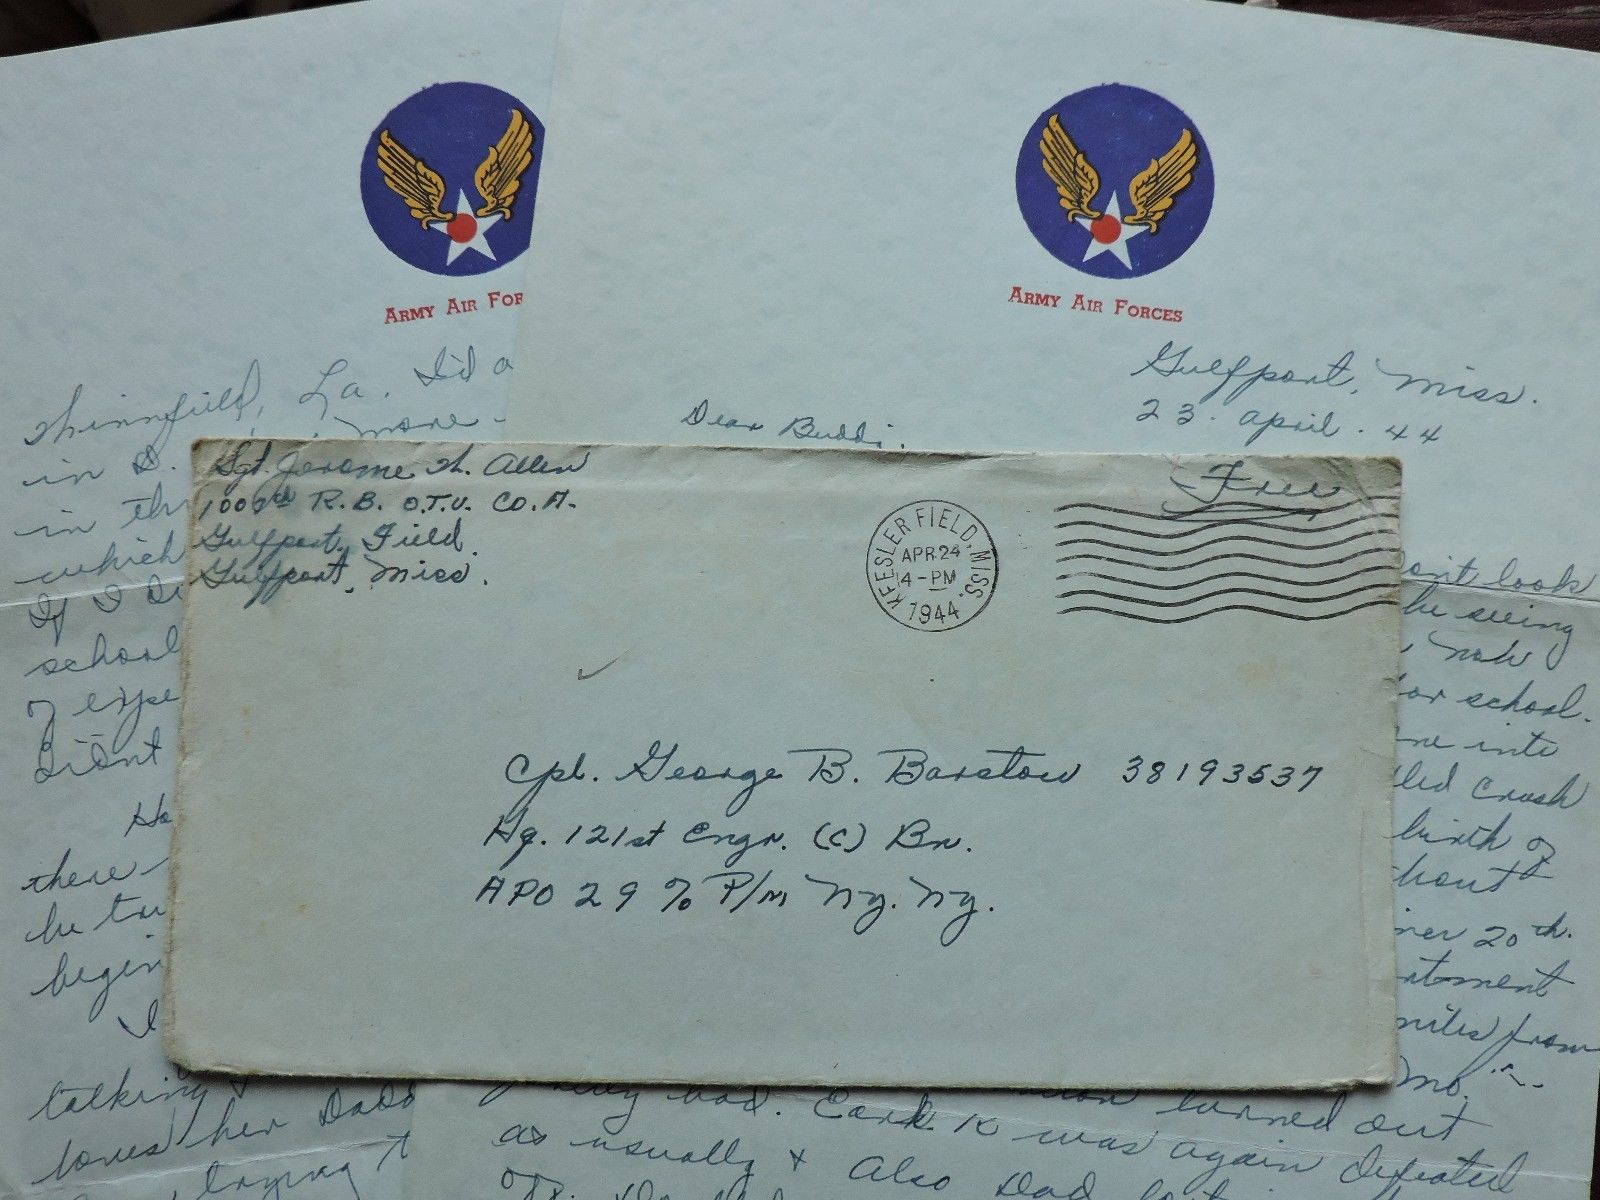 ARMY AIR FOR
La. I'd a
in
more -
in
which
If I
school
of expe
didnt
Ho
there
be
begin
I
talking &
loves her Dadd
trying t
ARMY AIR FORCES
Gulfport, Miss.
23. april. 44
Dear Budd
ont look
be seeing
now
or school.
ne into
lled crash
birth of
thout
ner 20th.
rtment
miles from
Mo.
bad. turned out
as usually & was again defeated
Also Dad
Sgt. Jerome W. Allen
R.B. O.T.U. CO. A.
Gulfport Field
Gulfport, Miss.
Free
KEESLER FIELD, MISS.
APR 24
4-PM
1944
Cpl. George B. Barstow 38193537
Hq. 121st Engr. (C) Bn.
APO 29 % P/m Ny. Ny.